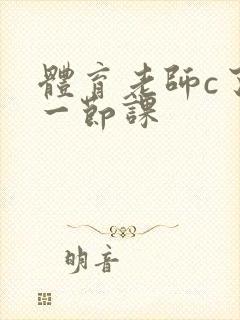 體育老師c了
一節課
明音